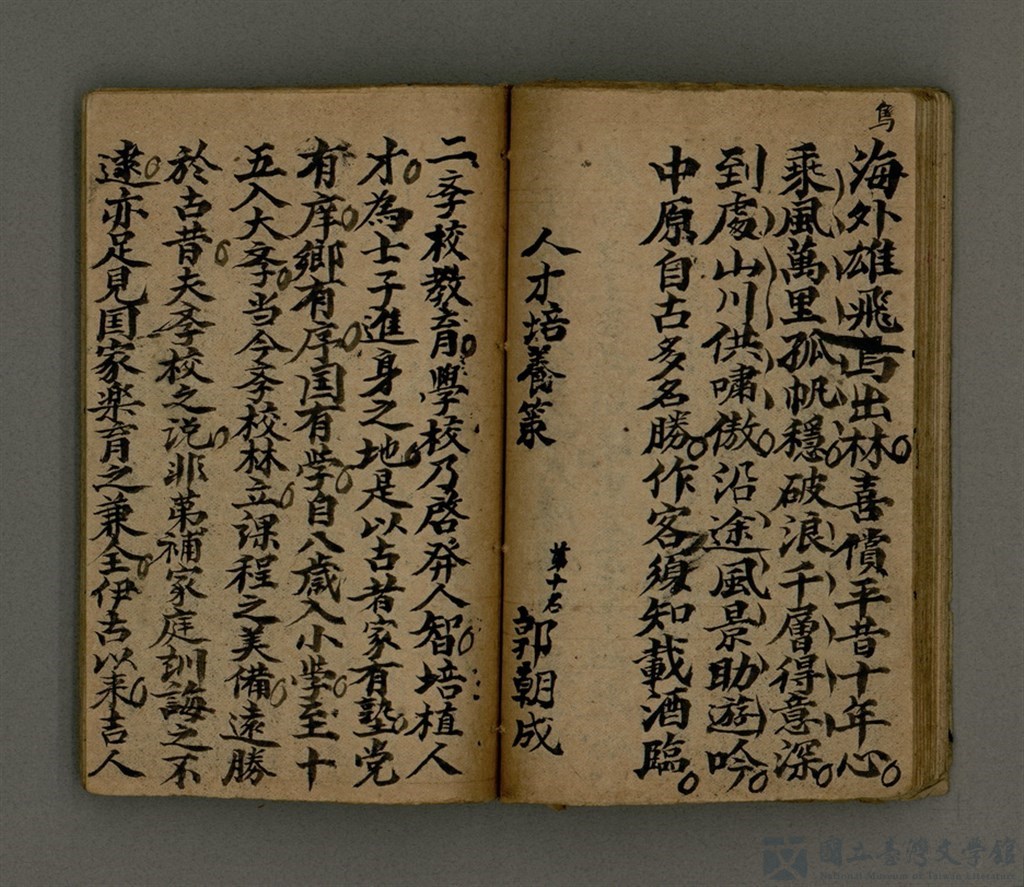 鳥
海外雄飛鳥出林喜償平昔十年心
乘風萬里孤帆穩破浪千層得意深
到處山川供嘯傲沿途風景助遊吟
中原自古多名勝作客須知載酒臨
人才培養策
第十名 郭朝成
二斈校教育學校乃啓發人智培植人
才為士子進身之地是以古者家有塾党
有庠鄉有序囯有学自八歲入小学至十
五入大斈当今斈校林立課程之美備遠勝
於古昔夫斈校之说非苐補家庭訓誨之不
逮亦足見囯家楽育之兼全伊古以来吉人
國立臺灣文學館
National Museum of Taiwan Literature